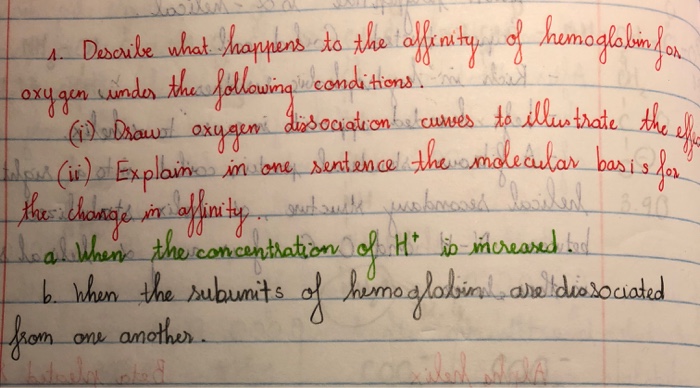 1. Describe what happens to the affinity of hemoglobin for
oxygen under the following conditions.
(i) Draw oxygen dissociation curves to illustrate the
(ii) Explain in one sentence the molecular basis for
the change in affinity.
a. When the concentration of H⁺ is increased.
b. When the subunits of hemoglobin are dissociated
from one another.